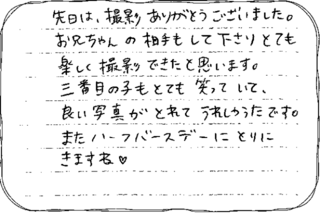 先日は、撮影ありがとうございました。
お兄ちゃんの相手もして下さりとても
楽しく撮影できたと思います。
三番目の子もとても笑っていて、
良い写真がとれてうれしかったです。
またハーフバースデーにとりに
きますね♡